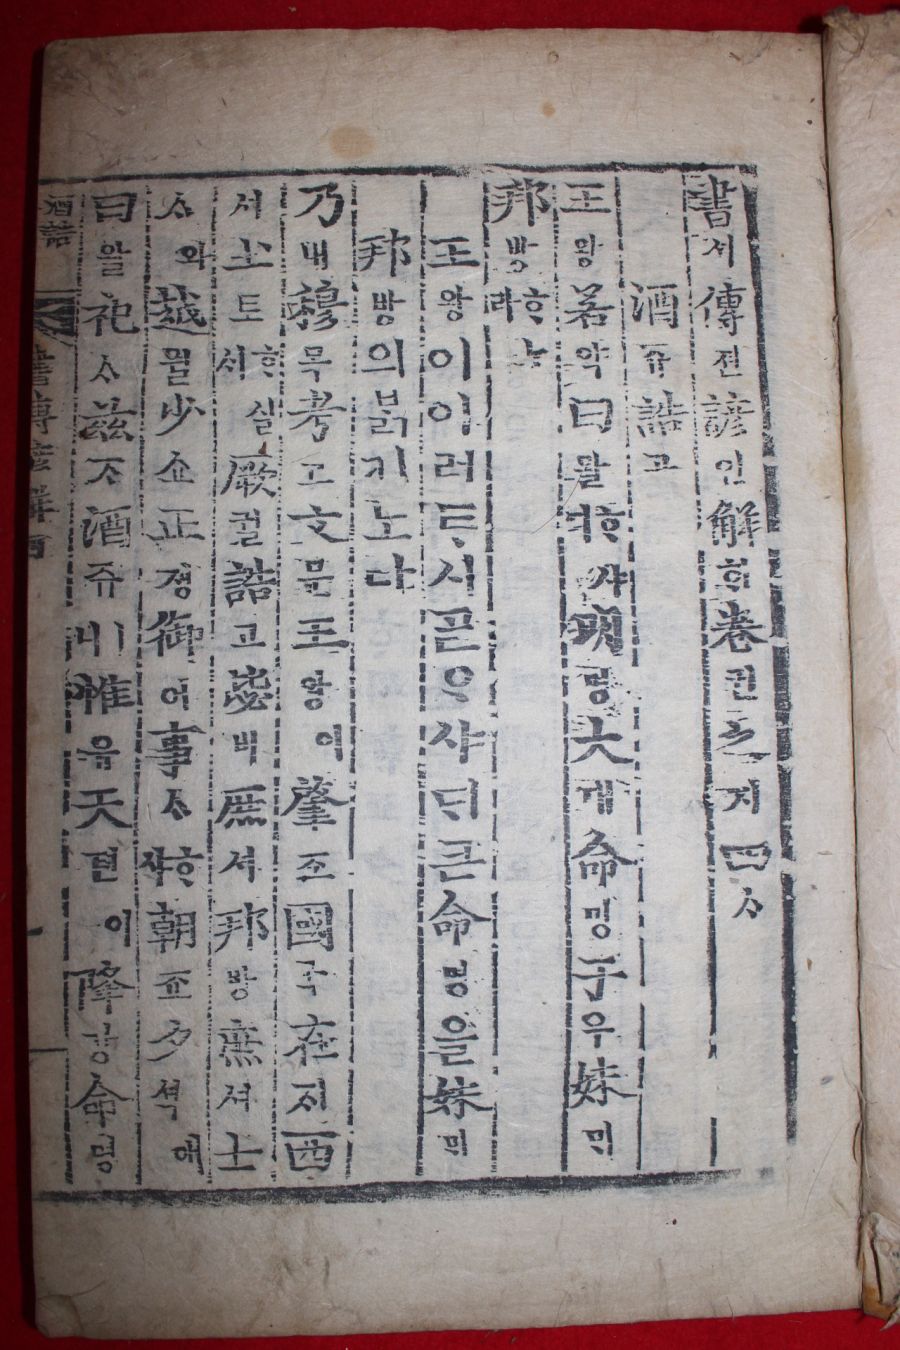 書셔傳젼諺언解ᄒᆡ卷권之지四ᄉᆞ
酒쥬誥고
王왕若약曰왈ᄒᆞ샤ᄃᆡ明명大대命명于우妹ᄆᆡ
邦방ᄒᆞ노라
王왕이이러ᄐᆞ시ᄀᆞᆯᄋᆞ샤ᄃᆡ큰命명을妹ᄆᆡ
邦방의ᄇᆞᆰ키노라
乃내穆목考고文문王왕이肇죠國국在ᄌᆡ西
셔土토ᄒᆞ실ᄉᆡ厥궐誥고毖비庶셔邦방庶셔士
ᄉᆞ와越월少쇼正졍御어事ᄉᆞᄒᆞ샤朝죠夕셕애
曰왈祀ᄉᆞ玆ᄌᆞ酒쥬ㅣ니惟유天텬이降강命명
酒誥
書傳諺解